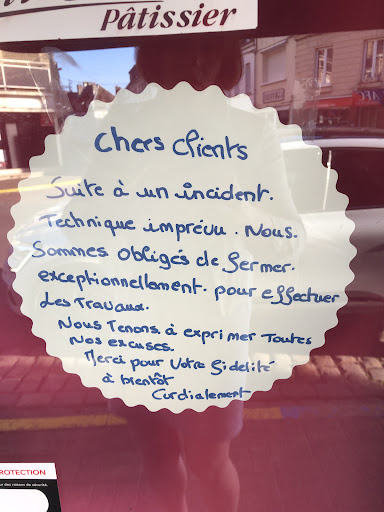 Pâtissier
Chers clients
Suite à un incident.
Technique imprévu. Nous.
Sommes obligés de fermer.
exceptionnellement. pour effectuer
des Travaux.
Nous Tenons à exprimer Toutes
Nos excuses.
Merci pour Votre fidelité
à bientôt
Cordialement
PROTECTION